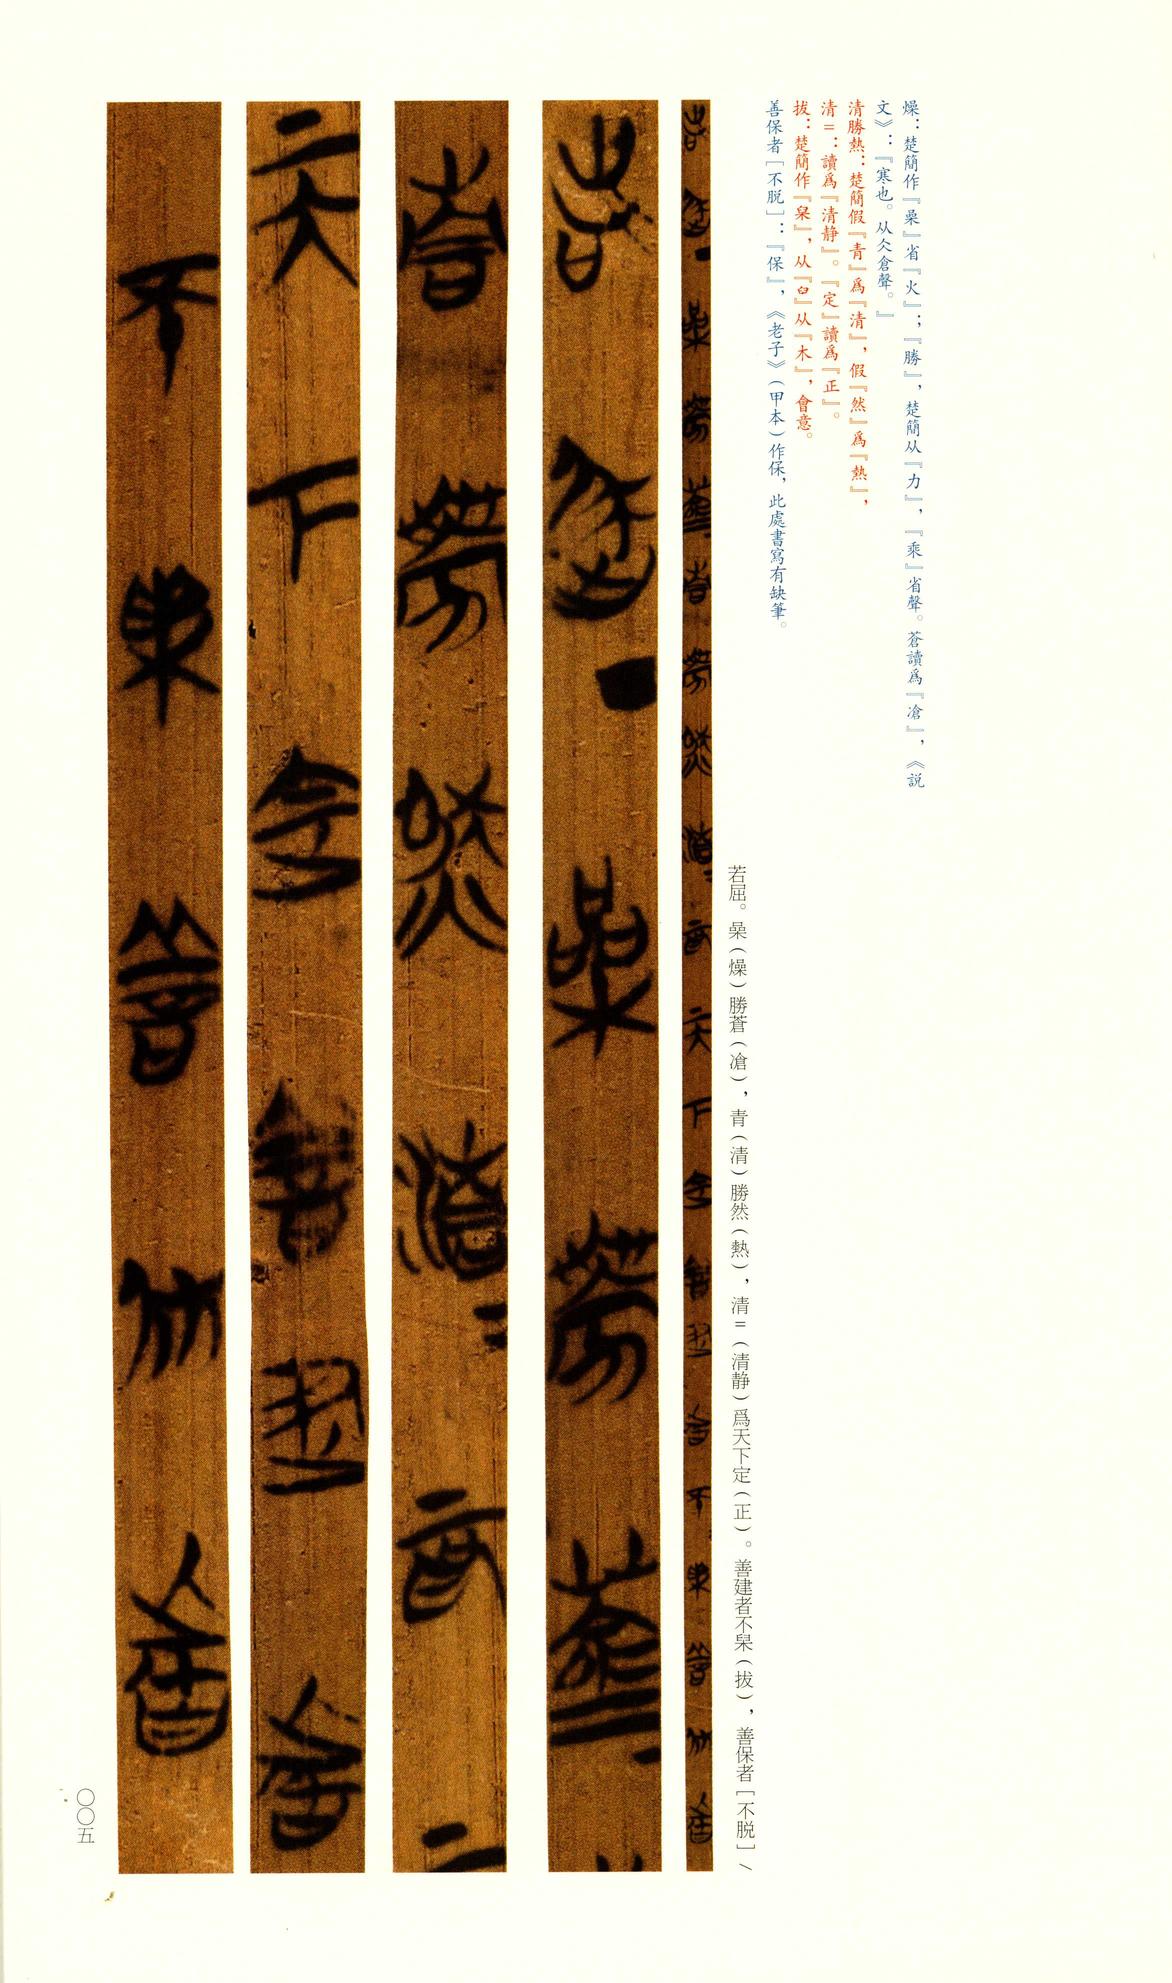 燥：楚簡作『喿』省『火』；『勝』，楚簡从『力』，『乘』省聲。蒼讀爲『凔』，《説
文》：『寒也。从仌倉聲。』
清勝熱：楚簡假『青』爲『清』，假『然』爲『熱』，
清=：讀爲『清静』。『定』讀爲『正』。
拔：楚簡作『㭒』，从『臼』从『木』，會意。
善保者［不脱］：『保』，《老子》（甲本）作保，此處書寫有缺筆。
若屈。喿（燥）勝蒼（凔），青（清）勝然（熱），清=（清静）爲天下定（正）。善建者不㭒（拔），善保者［不脱］/
〇〇五